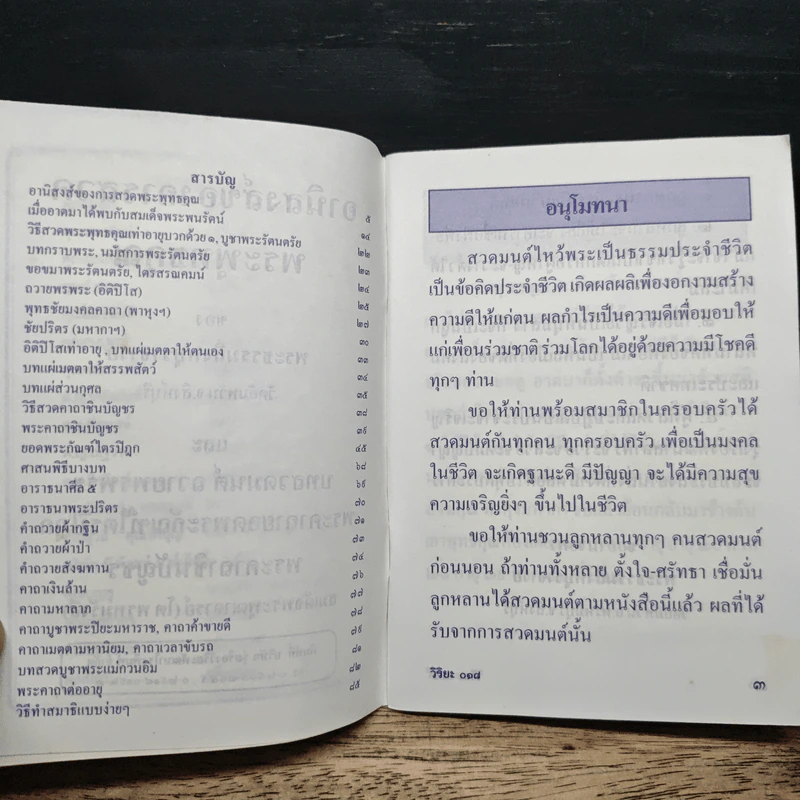 สารบัญ
อานิสงส์ของการสวดพระพุทธคุณ ๕
เมื่ออาตมาได้พบกับสมเด็จพระพนรัตน์ ๑๔
วิธีสวดพระพุทธคุณเท่าอายุบวกด้วย ๑, บูชาพระรัตนตรัย ๒๒
บทกราบพระ, นมัสการพระรัตนตรัย ๒๓
ขอขมาพระรัตนตรัย, ไตรสรณคมน์ ๒๔
ถวายพรพระ (อิติปิโส) ๒๕
พุทธชัยมงคลคาถา (พาหุงฯ) ๒๗
ชัยปริตร (มหากาฯ) ๓๐
อิติปิโสเท่าอายุ, บทแผ่เมตตาให้ตนเอง ๓๓
บทแผ่เมตตาให้สรรพสัตว์ ๓๔
บทแผ่ส่วนกุศล ๓๕
วิธีสวดคาถาชินบัญชร ๓๘
พระคาถาชินบัญชร ๓๙
ยอดพระกัณฑ์ไตรปิฎก ๔๕
ศาสนพิธีบางบท ๖๘
อาราธนาศีล ๕ ๖๙
อาราธนาพระปริตร ๗๐
คำถวายผ้ากฐิน ๗๑
คำถวายผ้าป่า ๗๓
คำถวายสังฆทาน ๗๔
คาถาเงินล้าน ๗๖
คาถามหาลาภ ๗๗
คาถาบูชาพระปิยะมหาราช, คาถาค้าขายดี ๗๘
คาถาเมตตามหานิยม, คาถาเวลาขับรถ ๗๙
บทสวดบูชาพระแม่กวนอิม ๘๑
พระคาถาต่ออายุ ๘๒
วิธีทำสมาธิแบบง่ายๆ ๘๕
อนุโมทนา
สวดมนต์ไหว้พระเป็นธรรมประจำชีวิต
เป็นข้อคิดประจำชีวิต เกิดผลผลิเพื่องอกงามสร้าง
ความดีให้แก่ตน ผลกำไรเป็นความดีเพื่อมอบให้
แก่เพื่อนร่วมชาติ ร่วมโลกได้อยู่ด้วยความมีโชคดี
ทุกๆ ท่าน
ขอให้ท่านพร้อมสมาชิกในครอบครัวได้
สวดมนต์กันทุกคน ทุกครอบครัว เพื่อเป็นมงคล
ในชีวิต จะเกิดฐานะดี มีปัญญา จะได้มีความสุข
ความเจริญยิ่งๆ ขึ้นไปในชีวิต
ขอให้ท่านชวนลูกหลานทุกๆ คนสวดมนต์
ก่อนนอน ถ้าท่านทั้งหลาย ตั้งใจ-ศรัทธา เชื่อมั่น
ลูกหลานได้สวดมนต์ตามหนังสือนี้แล้ว ผลที่ได้
รับจากการสวดมนต์นั้น
วิริยะ ๐๑๘
๓